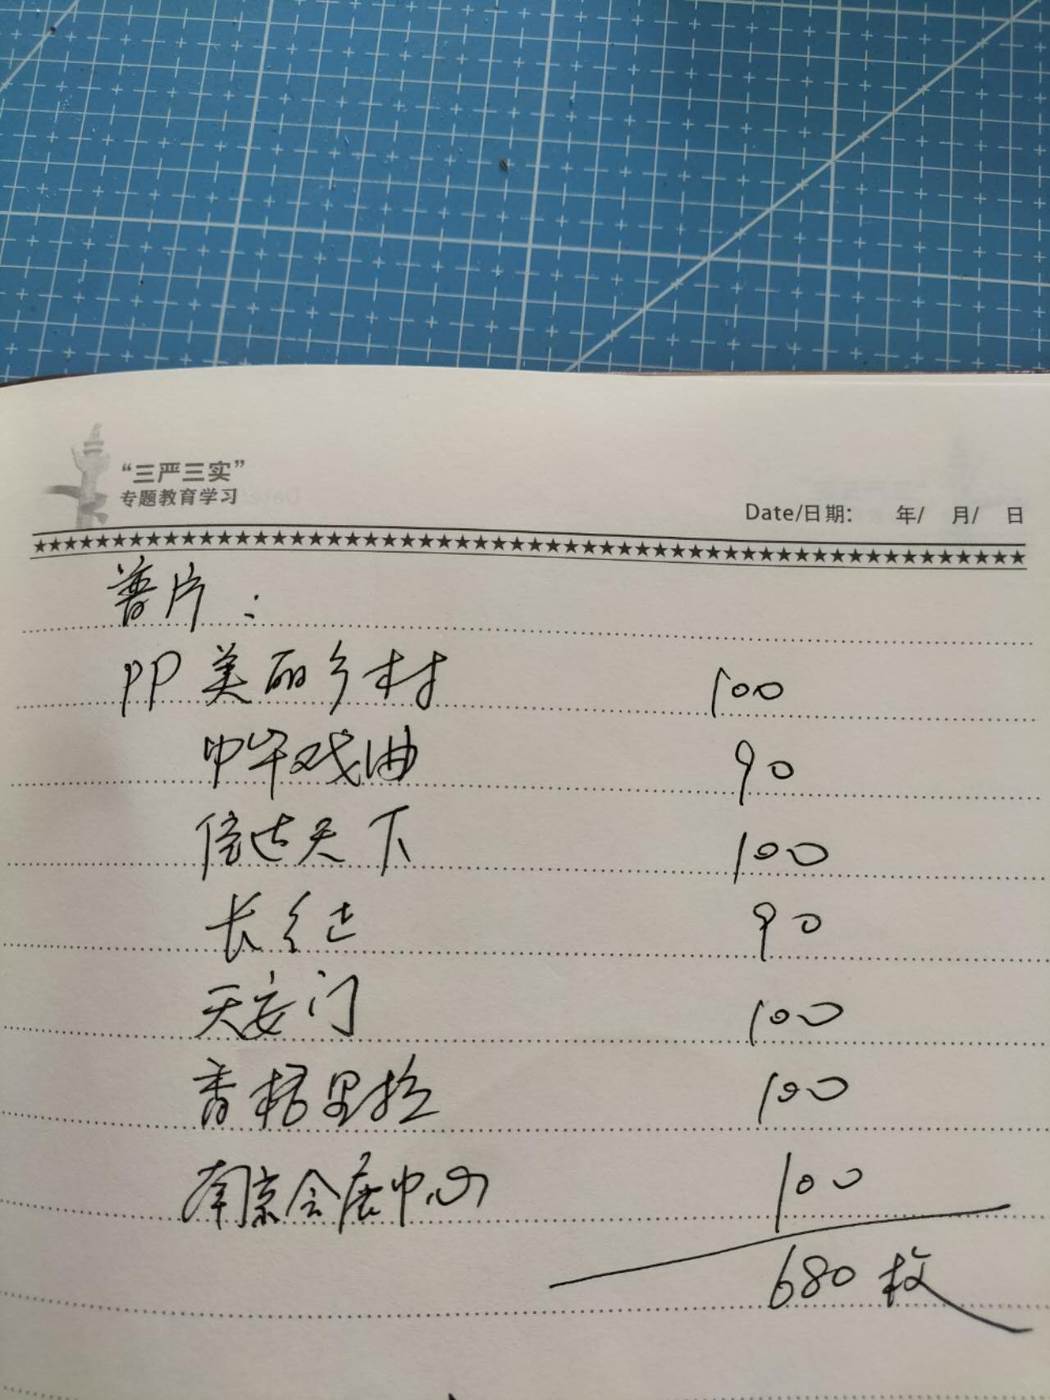 “三严三实”
专题教育学习
Date/日期: 年/ 月/ 日
普片:
PP 美丽乡村 100
中华戏曲 90
信达天下 100
长征 90
天安门 100
香格里拉 100
南京会展中心 100
680 枚